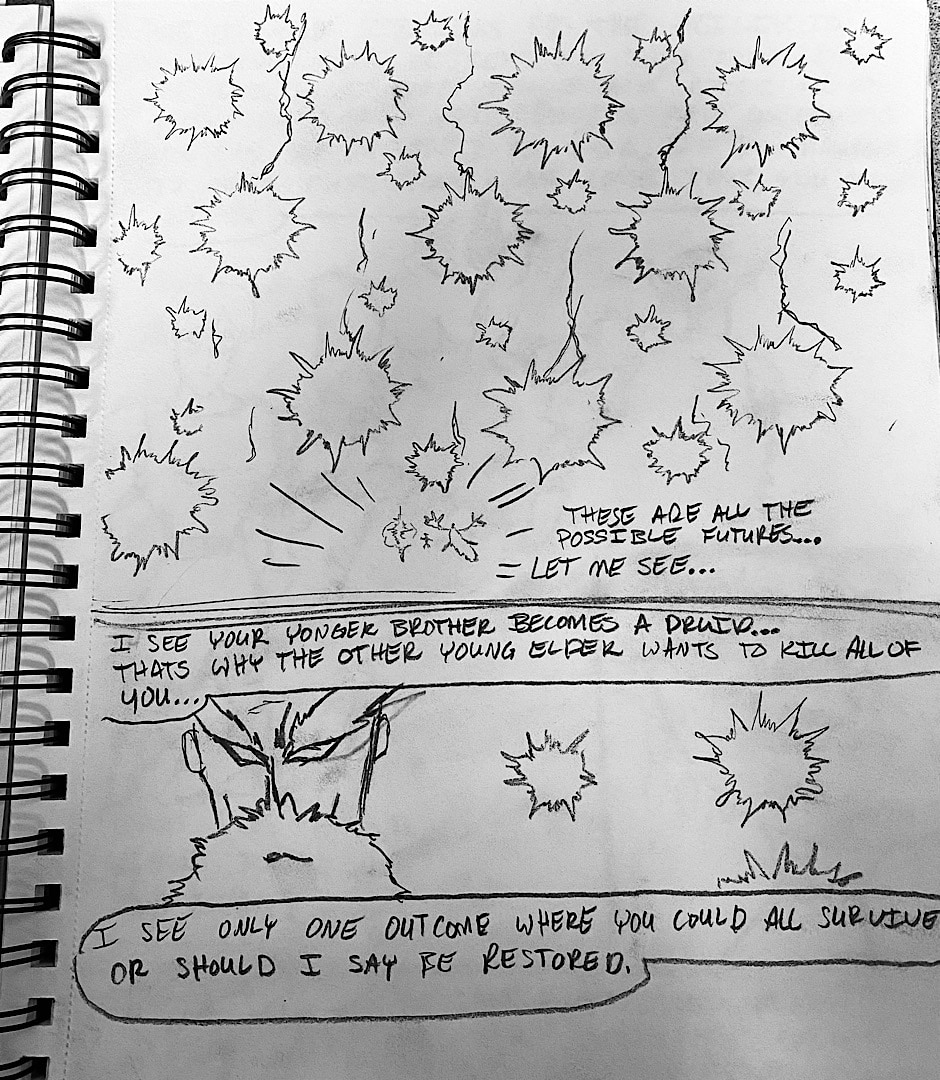 THESE ARE ALL THE
POSSIBLE FUTURES...
LET ME SEE...
I SEE YOUR YONGER BROTHER BECOMES A DRUID...
THATS WHY THE OTHER YOUNG ELDER WANTS TO KILL ALL OF
YOU...
I SEE ONLY ONE OUTCOME WHERE YOU COULD ALL SURVIVE
OR SHOULD I SAY BE RESTORED.